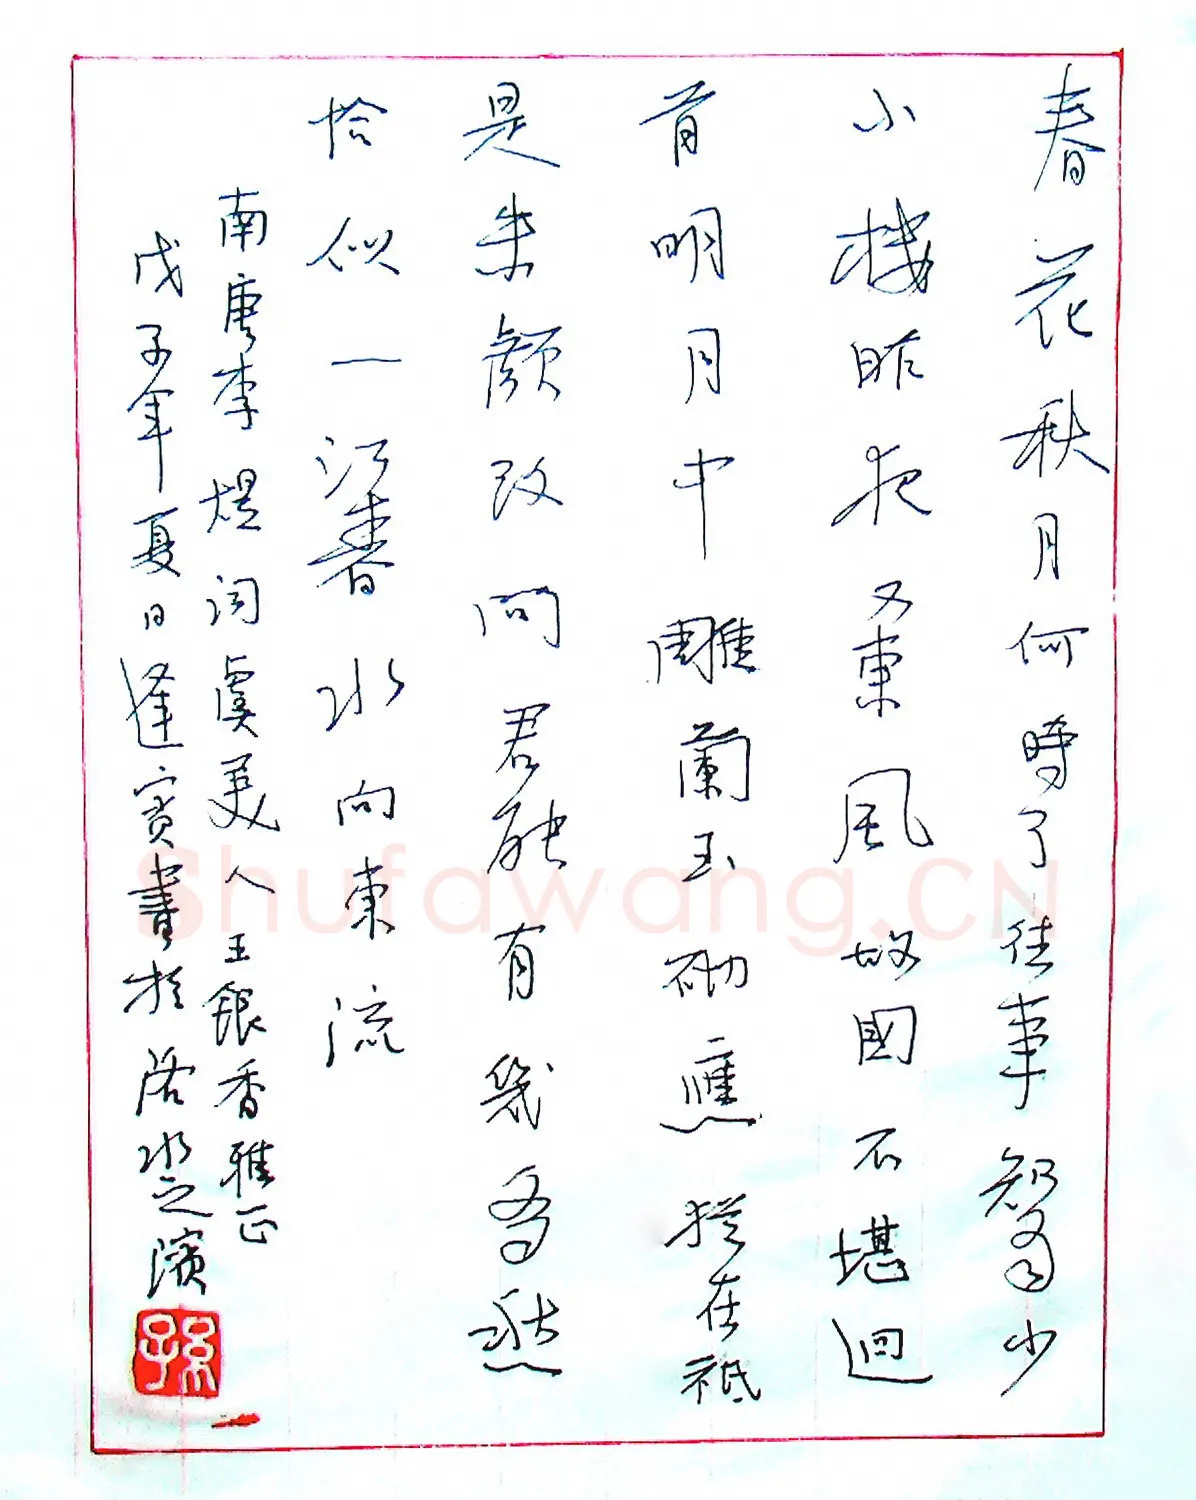 春花秋月何時了往事知多少
小樓昨夜又東風故國不堪迴
首明月中雕蘭玉砌應猶在祗
是朱顏改問君能有幾多愁
恰似一江春水向東流
南唐李煜词虞美人 王銀香雅正
戊子年夏日逢賓書於洛水之濱
孫
Shufawang.CN